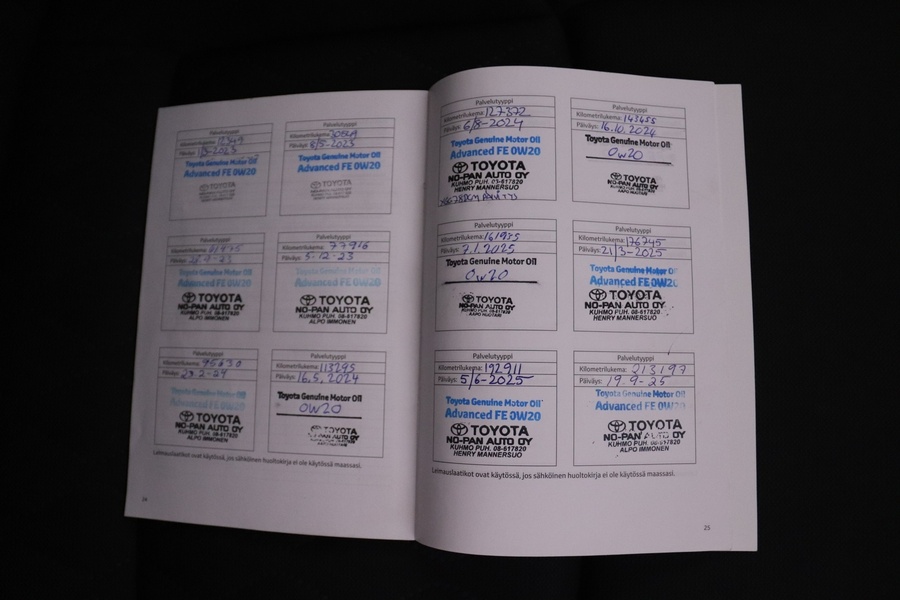 Palvelutyyppi
Kilometrilukema:
Päiväys: 1/3-2023
Toyota Genuine Motor Oil
Advanced FE 0W20
TOYOTA
Palvelutyyppi
Kilometrilukema:
Päiväys: 8/5-2023
Toyota Genuine Motor Oil
Advanced FE 0W20
TOYOTA
Palvelutyyppi
Kilometrilukema:
Päiväys:
Toyota Genuine Motor Oil
Advanced FE 0W20
TOYOTA
NO-PAN AUTO OY
KUHMO PUH. 08-617820
ALPO IMMONEN
Palvelutyyppi
Kilometrilukema: 77916
Päiväys: 5-12-23
Toyota Genuine Motor Oil
Advanced FE 0W20
TOYOTA
NO-PAN AUTO OY
KUHMO PUH. 08-617820
ALPO IMMONEN
Palvelutyyppi
Kilometrilukema: 95630
Päiväys:
Toyota Genuine Motor Oil
Advanced FE 0W20
TOYOTA
NO-PAN AUTO OY
KUHMO PUH. 08-617820
ALPO IMMONEN
Palvelutyyppi
Kilometrilukema: 113295
Päiväys: 16.5.2024
Toyota Genuine Motor Oil
0W20
TOYOTA
NO-PAN AUTO OY
Leimauslaatikot ovat käytössä, jos sähköinen huoltokirja ei ole käytössä maassasi.
24
Palvelutyyppi
Kilometrilukema: 127372
Päiväys: 6/8-2024
Toyota Genuine Motor Oil
Advanced FE 0W20
TOYOTA
NO-PAN AUTO OY
KUHMO PUH. 08-617820
HENRY MANNERSUO
Palvelutyyppi
Kilometrilukema: 143455
Päiväys: 16.10.2024
Toyota Genuine Motor Oil
0w20
TOYOTA
NO-PAN AUTO OY
KUHMO PUH. 08-617820
Palvelutyyppi
Kilometrilukema: 161975
Päiväys: 7.1.2025
Toyota Genuine Motor Oil
0w20
TOYOTA
NO-PAN AUTO OY
KUHMO PUH. 08-617820
Palvelutyyppi
Kilometrilukema: 176745
Päiväys: 21/3-2025
Toyota Genuine Motor Oil
Advanced FE 0W20
TOYOTA
NO-PAN AUTO OY
KUHMO PUH. 08-617820
HENRY MANNERSUO
Palvelutyyppi
Kilometrilukema: 192911
Päiväys: 5/6-2025
Toyota Genuine Motor Oil
Advanced FE 0W20
TOYOTA
NO-PAN AUTO OY
KUHMO PUH. 08-617820
HENRY MANNERSUO
Palvelutyyppi
Kilometrilukema: 213197
Päiväys: 19-9-25
Toyota Genuine Motor Oil
Advanced FE 0W20
TOYOTA
NO-PAN AUTO OY
KUHMO PUH. 08-617820
ALPO IMMONEN
Leimauslaatikot ovat käytössä, jos sähköinen huoltokirja ei ole käytössä maassasi.
25